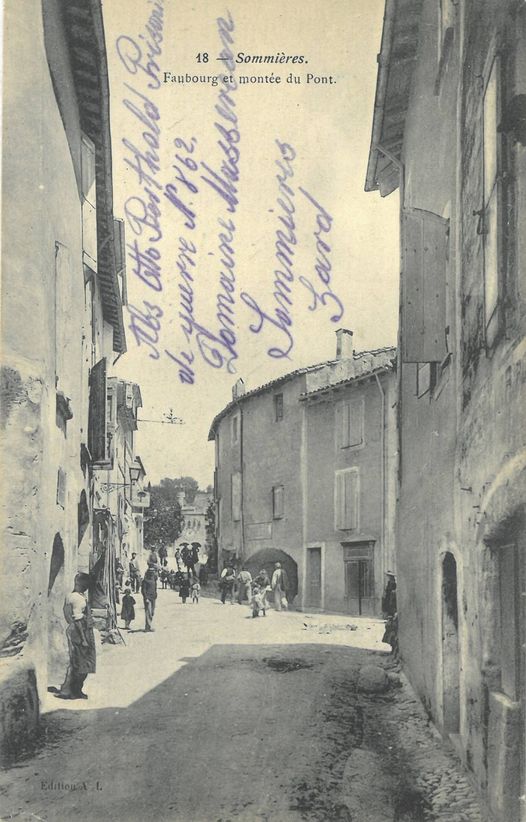 18 — Sommières.
Faubourg et montée du Pont.
Mos Otto Barthold Prisonn
de guerre N. 862.
Domaine Massereau
Sommieres
Gard
Edition A. L